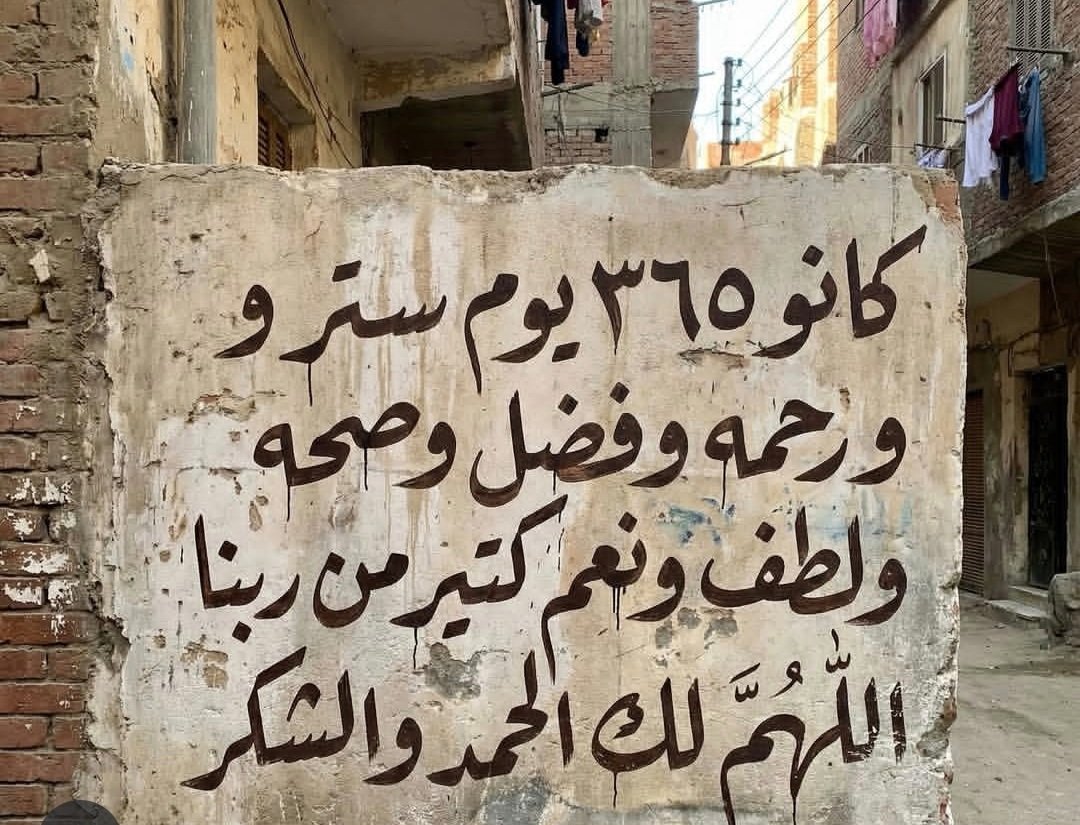 كانو ٣٦٥ يوم ستر و
ورحمه وفضل وصحه
ولطف ونعم كتير من ربنا
اللّٰهُمَّ لك الحمد والشكر